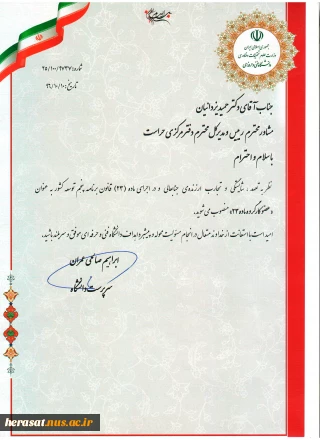 جمهوری اسلامی ایران
وزارت علوم، تحقیقات و فناوری
شماره: ۲۵/۱۰۰/۹۷۳۷
تاریخ: ۹۶/۱۰/۱۰
جناب آقای دکتر حمید یزدانیان
مشاور محترم رییس و مدیرکل محترم دفتر مرکزی حراست
با سلام و احترام
نظر به تعهد ، شایستگی و تجارب ارزنده‌ی جنابعالی و در اجرای ماده (۲۳) قانون برنامه پنجم توسعه کشور به عنوان
« عضو کارگروه ماده ۲۳» منصوب می شوید.
امید است با استعانت از خداوند متعال در انجام مسئولیت محوله و پیشبرد اهداف دانشگاه فنی و حرفه ای موفق و سربلند باشید.
ابراهیم صالحی عمران
سرپرست دانشگاه
herasat.nus.ac.ir